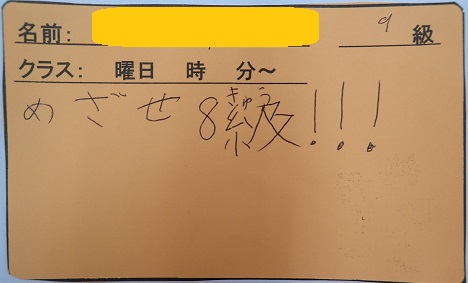 名前: 9 級
クラス: 曜日 時 分～
めざせ8級!!!
きゅう